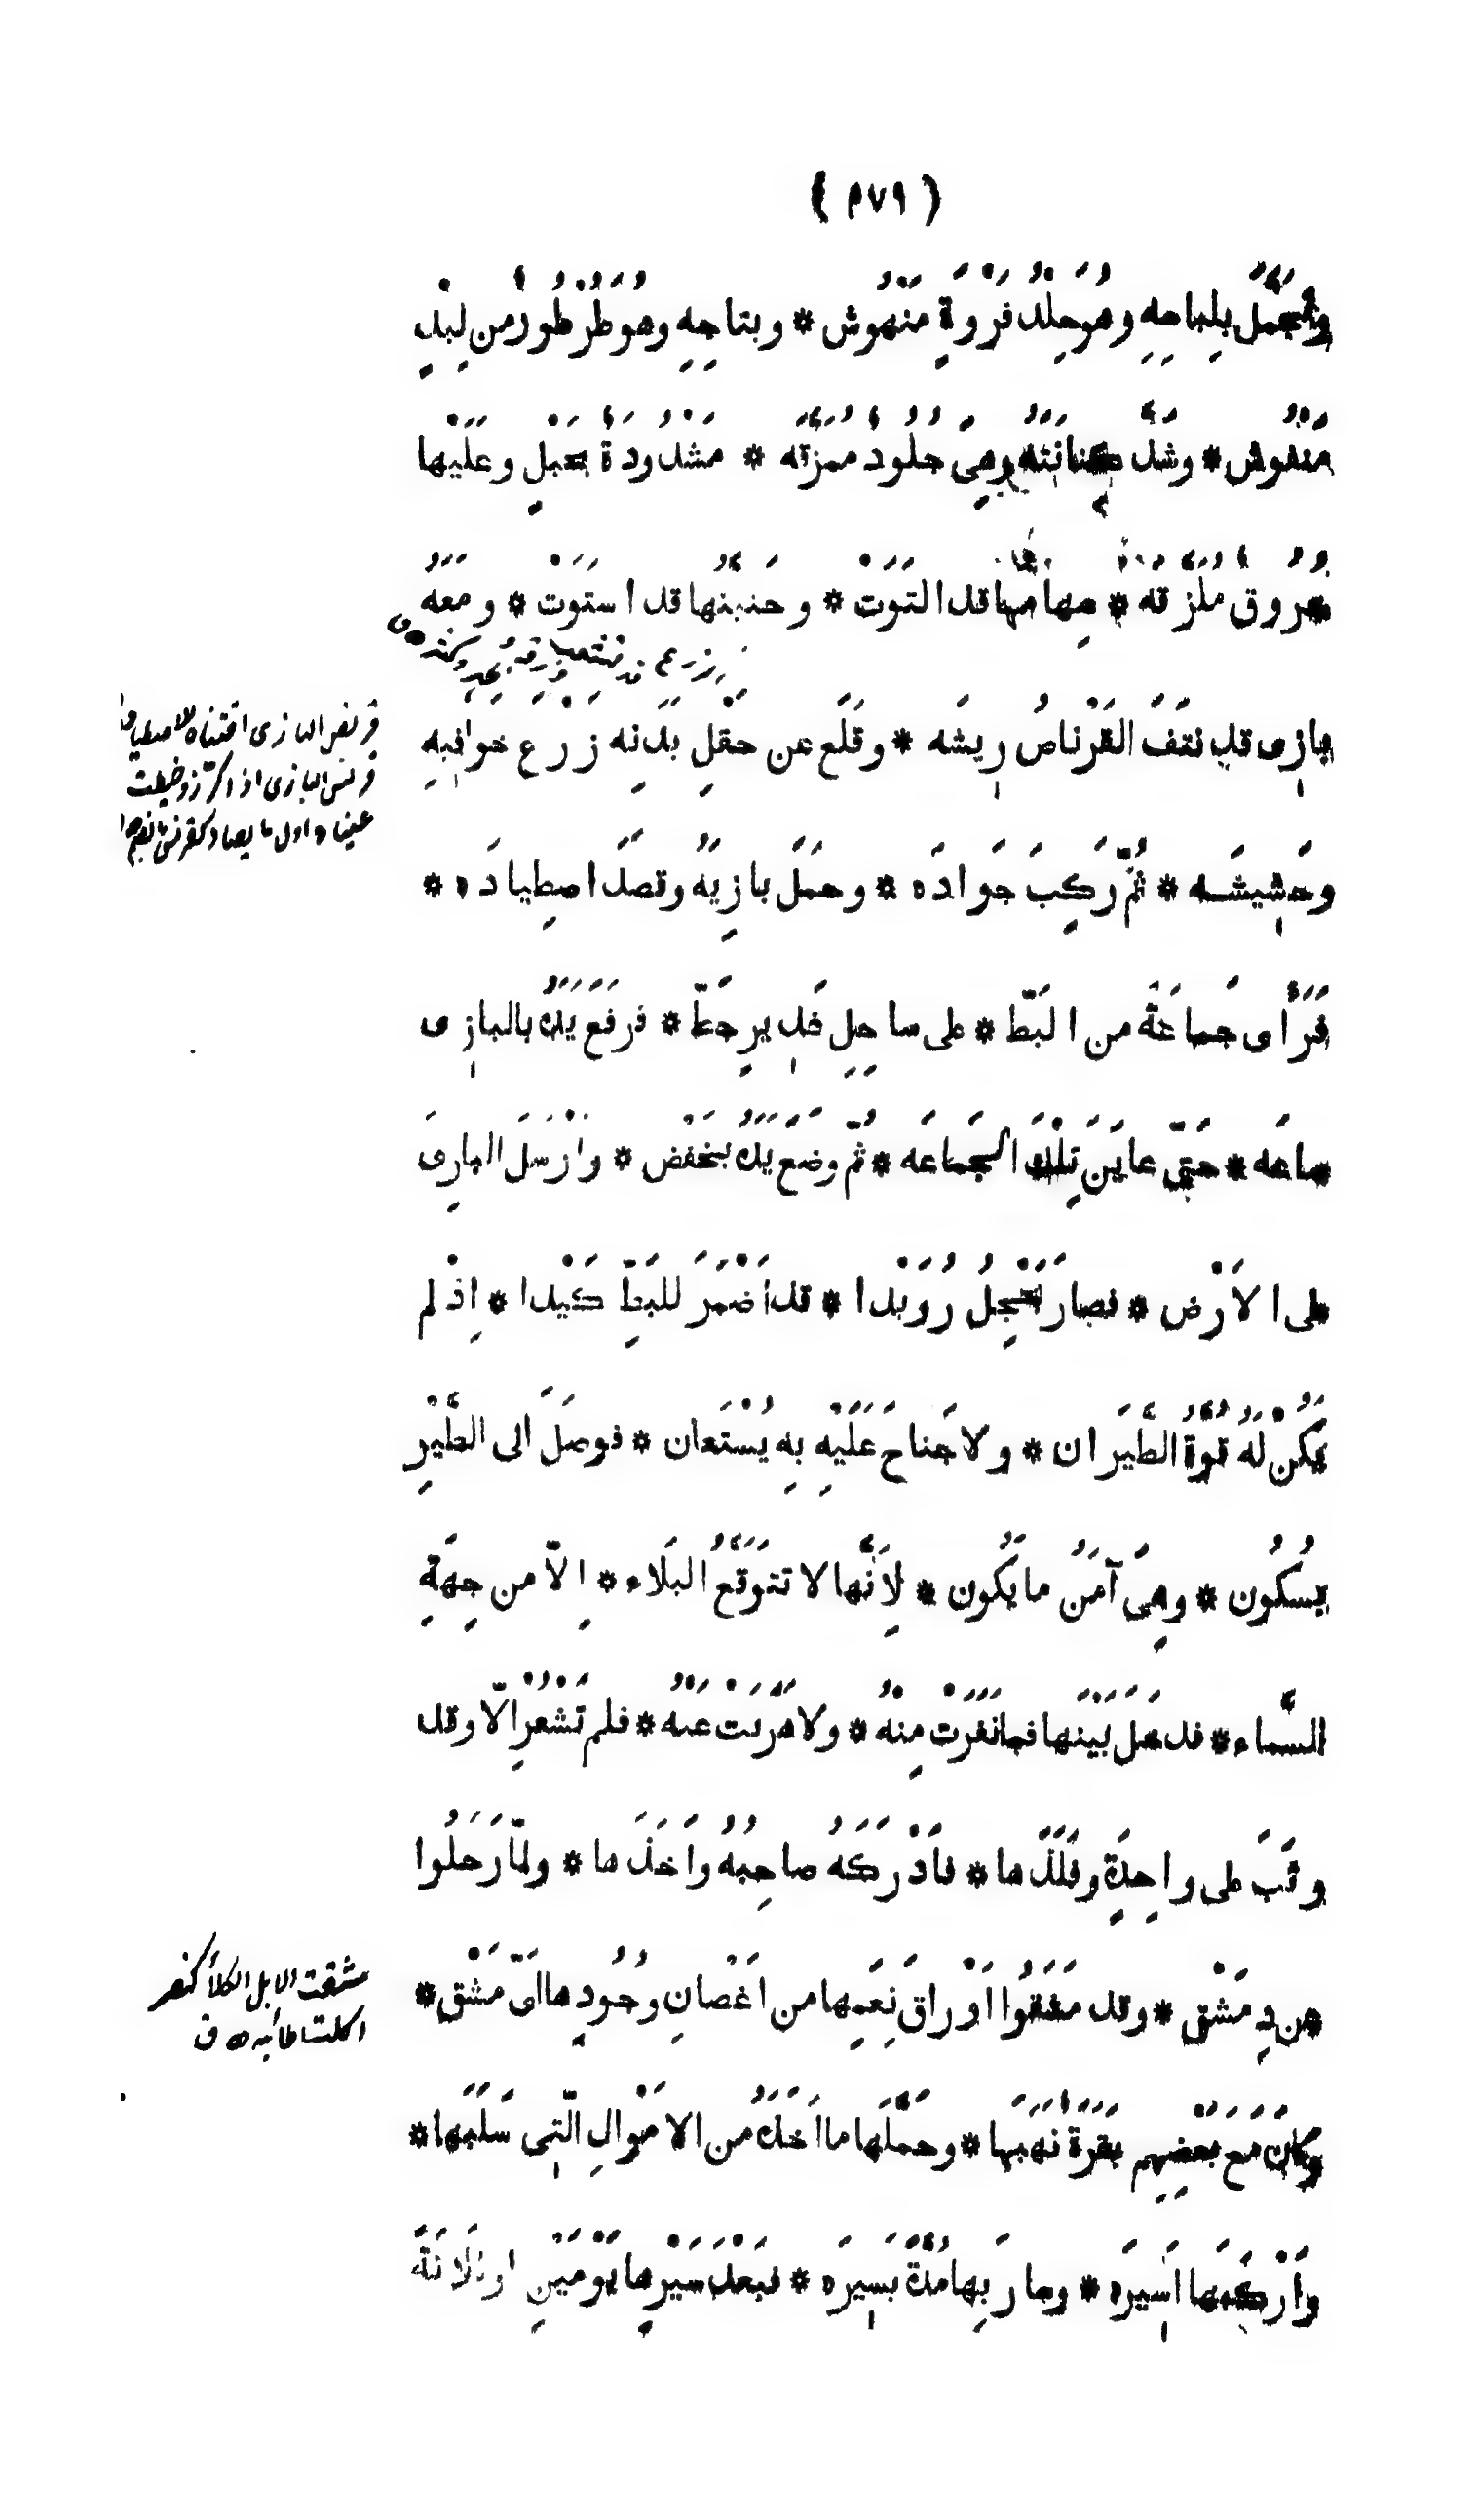 (٢٧٩)
وتجَمَّلَ بِلِباجِهِ وهُوَ جِلْدُ فَرْوَةٍ مَنْهُوش * وبتاجِهِ وهُوَ طُرْطُورٌ من لِبْدٍ
مَنْفُوش * وشَدَّ كِنانَتَهُ وهِىَ جُلُودٌ مُمَزَّقَه * مَشْدُودَةٌ بحَبْلٍ وعَلَيْها
خُرُوقٌ مُلَزَّقَه * سِهامُها قد التَوَتْ * وحَنِيَّتُها قد اسْتَوَتْ * ومَعَهُ
بازِى قد نَتَفَ القَرْناصُ رِيشَه * وقَلَعَ عن حَقْلِ بَدَنِه زَرْعَ خَوافِيهِ
وحَشِيشَه * ثُمَّ رَكِبَ جَوادَه * وحَمَلَ بازِيَهُ وقصَدَ اصطِيادَه *
فَرَأَى جَماعَةً من البَطّ * على ساحِلِ غَدِيرٍ حَطّا * فرفَعَ يَدَهُ بالبازِى
ساعَه * حَتّى عايَنَ تِلْكَ الجَماعَه * ثُمَّ وضَعَ يَدَهُ بخَفْض * وأَرْسَلَ البازِىَ
على الأَرْض * فصارَ يَحْجِلُ رُوَيْدا * قد أَضْمَرَ للبَطِّ كَيْدا * إِذْ لم
يَكُنْ لَهُ قُوَّةُ الطَّيَران * ولا جَناحَ عَلَيْهِ بِهِ يُسْتَعان * فوصَلَ الى الطَّيْرِ
بسُكُون * وهِىَ آمَنُ ما يَكُون * لِأَنَّها لا تتوَقَّعُ البَلاء * إِلاّ من جِهَةِ
السَّماء * فدخَلَ بَيْنَها فما نَفَرَتْ مِنْهُ * ولا هَرَبَتْ عَنْهُ * فلم تَشْعُرْ إلاّ وقد
وثَبَ على واحِدَةٍ وقَلَّدَها * فأَدْرَكَهُ صاحِبُهُ وأَخَذَها * ولمّا رَحَلُوا
من دِمَشْق * وقد مَشَقُوا أَوْراقَ نِعَمِها من أَغْصانِ وُجُودِها أَىَّ مَشْق *
وكانَ مَعَ بَعْضِهِم بَقَرَةٌ نَهَبَها * وحَمَّلَها ما أَخَذَهُ من الأَمْوالِ الّتِى سَلَبَها *
وأَرْكَبَها أَسِيرَه * وسارَ بِها مُدَّةً يَسِيرَه * فبَعْدَ سَيْرِها يَوْمَيْنِ او ثَلاثَةً
قرنص البازى اقتناه للاصطياد
قرنص البازى اذا كرّز وخيطت
عيناه اول ما يصاد
مشقت الابل الكلأ كنصر
اكلت اطائبه ق